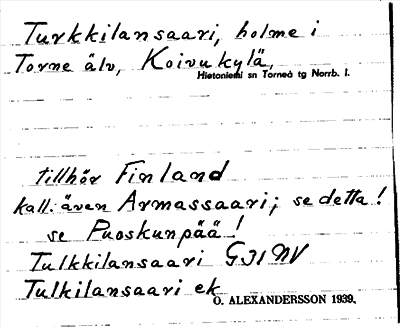 Turkkilansaari, holme i
Torne älv, Koivukylä,
Hietoniemi sn Torneå tg Norrb. l.
tillhör Finland
kall. även Armassaari; se detta!
se Puoskunpää!
Tulkkilansaari G31NV
Tulkilansaari ek
O. ALEXANDERSSON 1939.